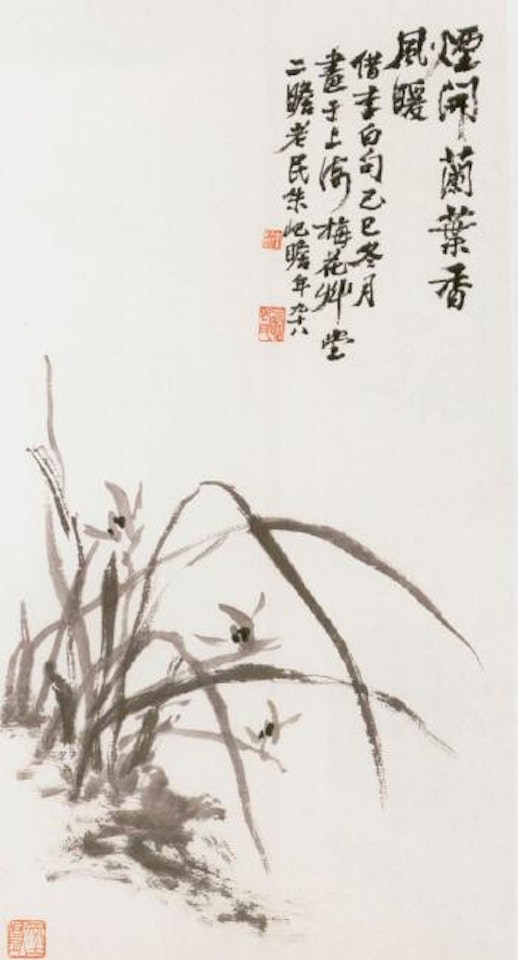 煙開蘭葉香
風暖
借李白句己巳冬月
畫于上海梅花艸堂
二瞻老民朱屺瞻年九十八